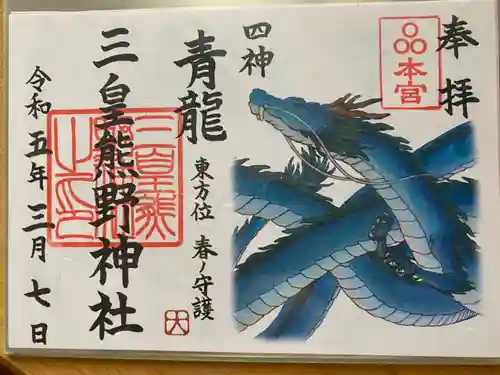 奉拝
品本宮
四神
青龍
東方位 春ノ守護
三皇熊野神社
令和五年三月七日